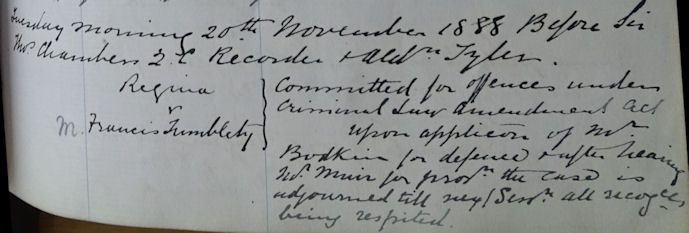 Tuesday morning 20th November 1888 Before Sir
Thos Chambers Q.C Recorder & Aldn Tyler.
Regina
v
M. Francis Tumblety
Committed for offences under
Criminal Law Amendment Act
upon applicon of Mr.
Bodkin for defence & after hearing
Mr. Muir for prosn the case is
adjourned till next Sessn. all recogces
being respited.